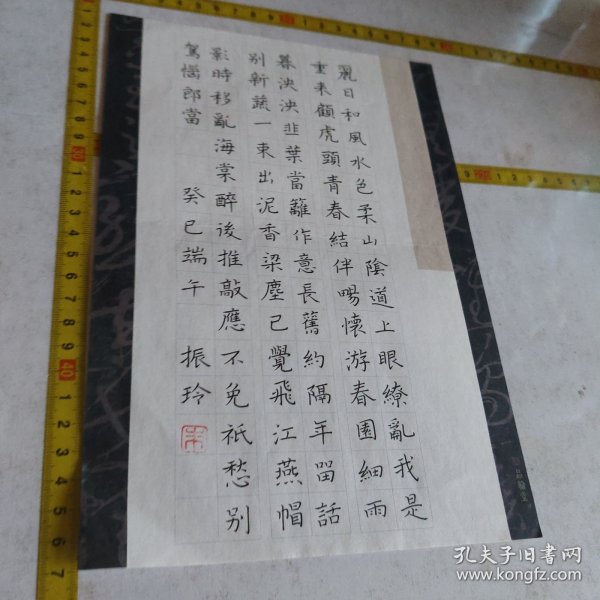 麗日和風水色柔山陰道上眼繚亂我是
重來顧虎頭青春結伴暢懷游春園細雨
暮泱泱韭葉當籬作意長舊約隔年留話
别新蔬一束出泥香梁塵已覺飛江燕帽
影時移亂海棠醉後推敲應不免祇愁别
駕惱郎當 癸巳端午 振玲
孔夫子旧書网
www.kongfz.com